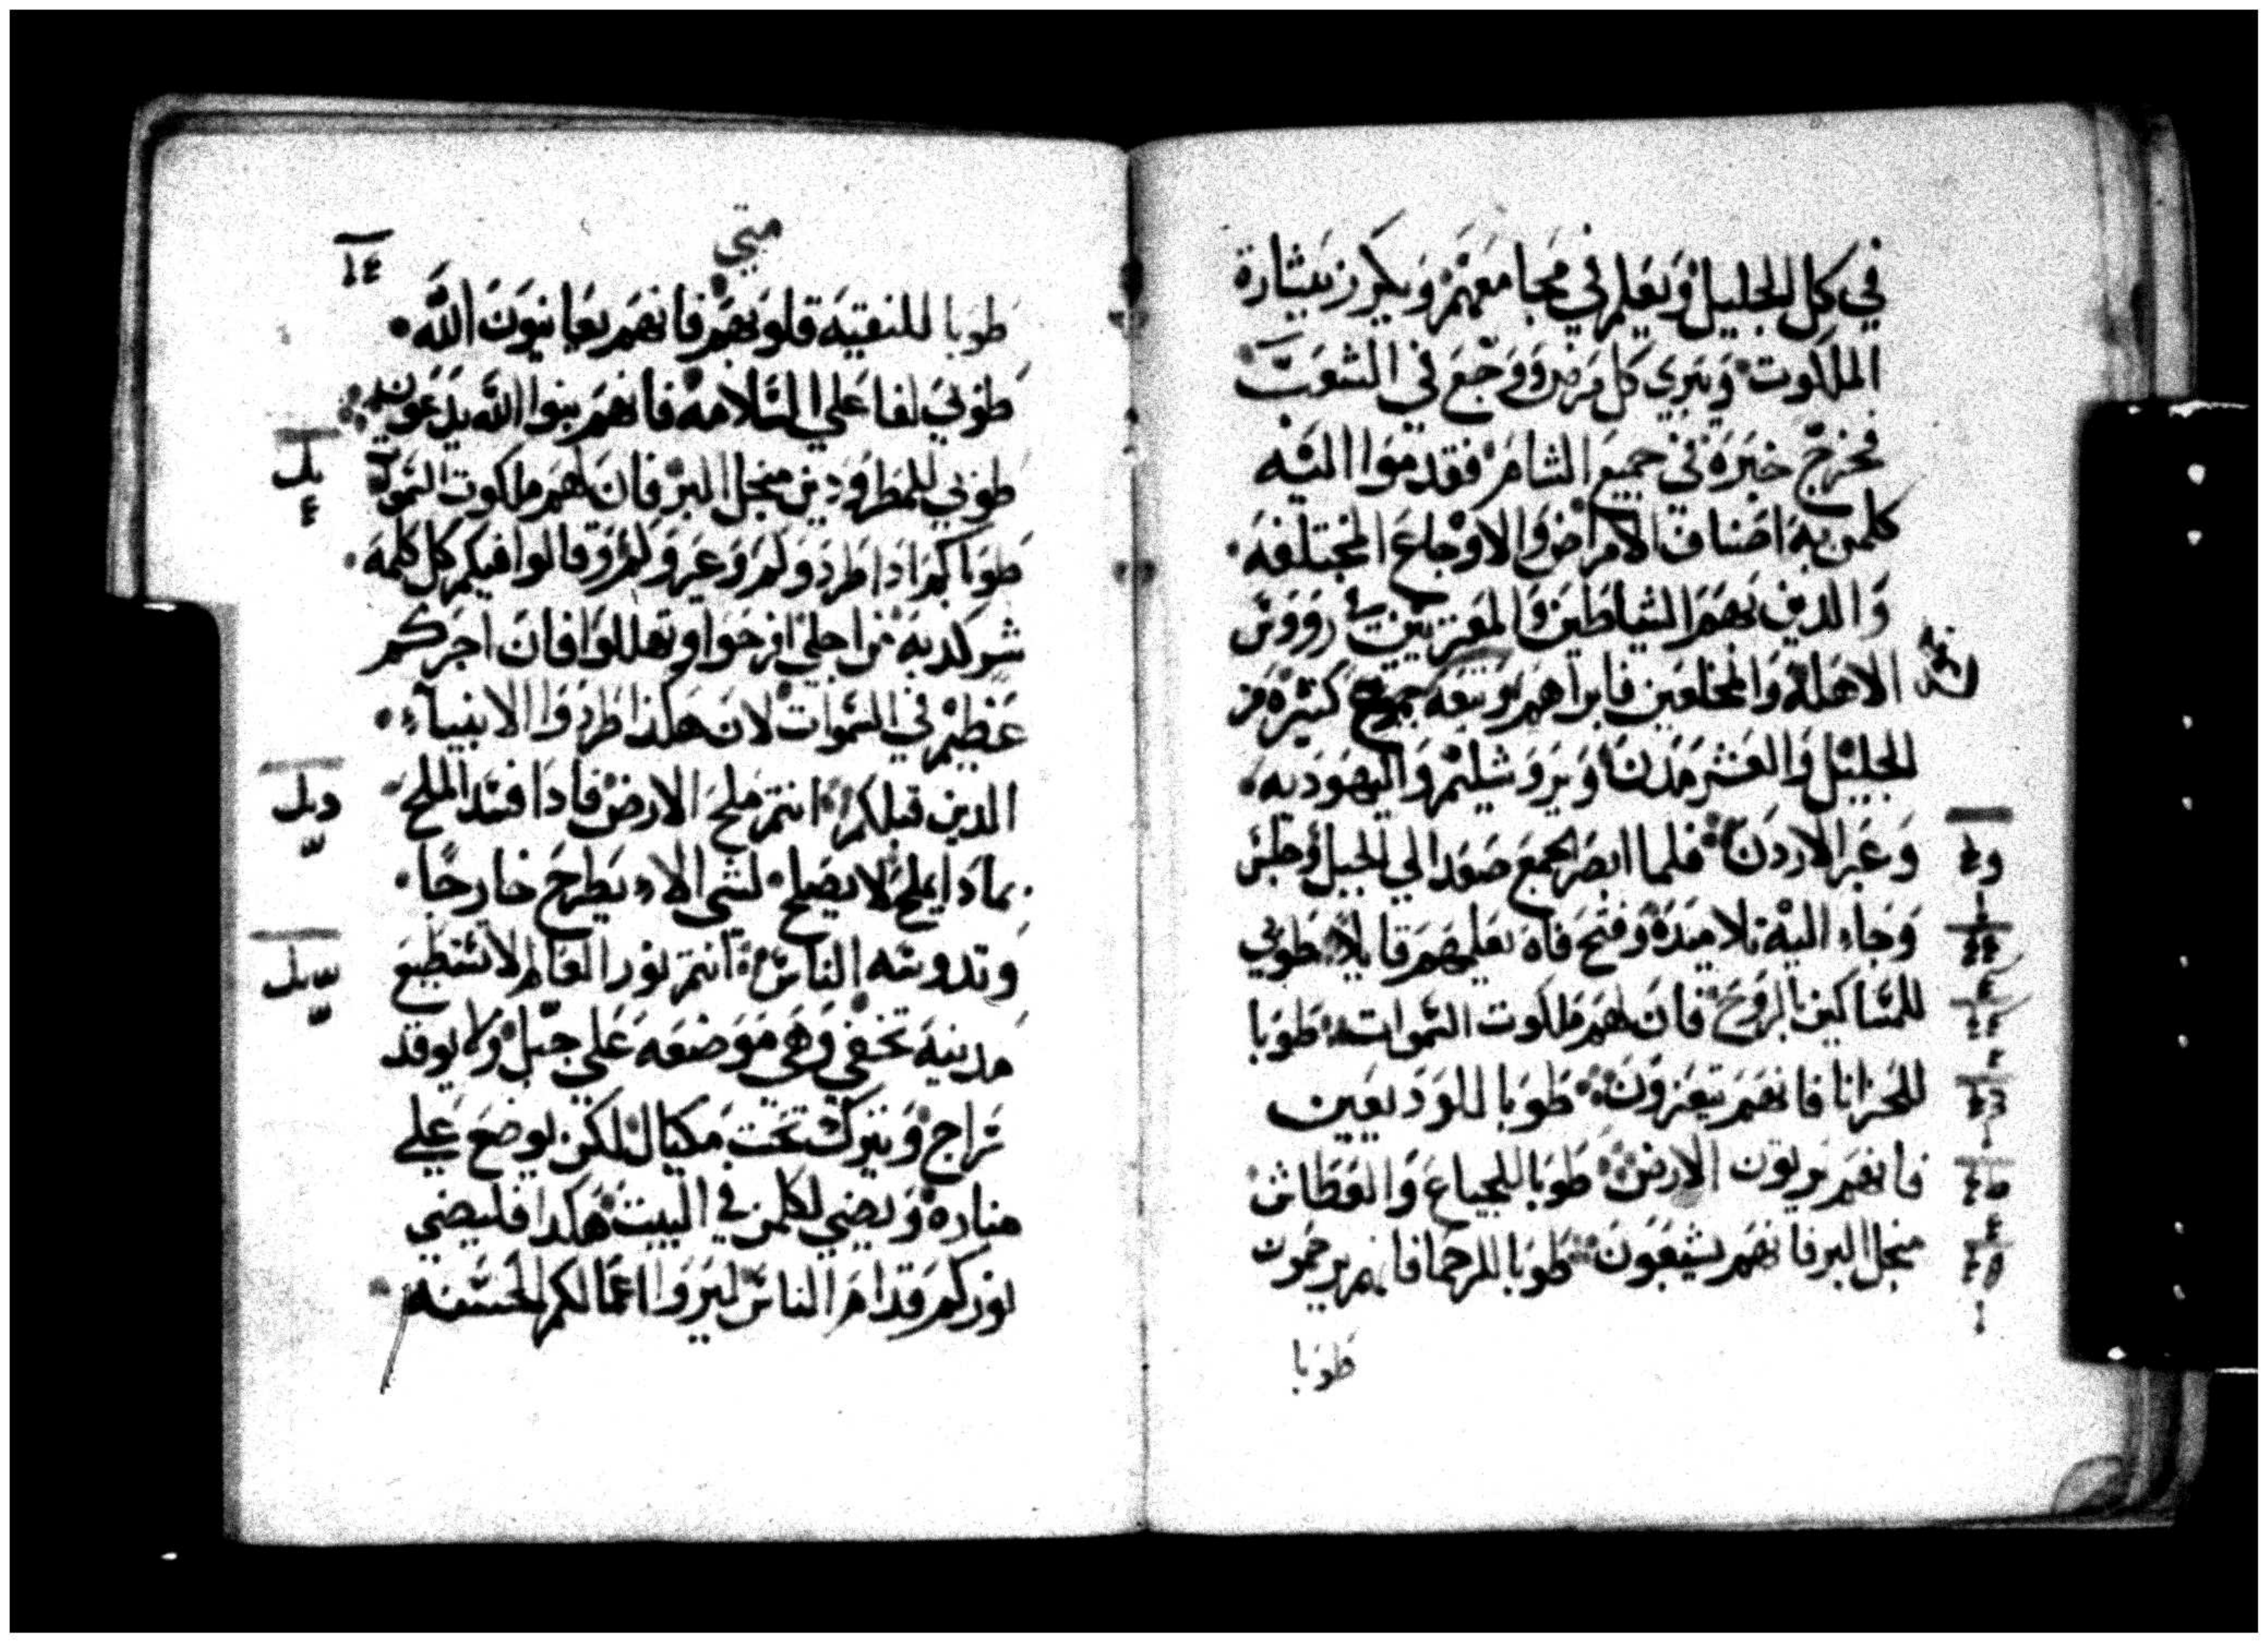 في كل الجليل ويعلم في مجامعهم ويكرز ببشارة
الملكوت ويبري كل مرض ووجع في الشعب
فخرج خبره في جميع الشام فقدموا اليه
كلمن به اصناف الامراض والاوجاع المختلفه
والدين بهم الشياطين والمعتريين في رووس
الاهله والمخلعين فابراهم وتبعه جموع كثيره من
الجليل والعشر مدن ويروشليم واليهوديه
وعبر الاردن فلما ابصر الجمع صعد الي الجبل وجلس
وجاء اليه تلاميده وفتح فاه يعلمهم قايلا طوبي
للمساكين بالروح فان لهم ملكوت السموات طوبا
للحزانا فانهم يتعزون طوبا للوديعيين
فانهم يرتون الارض طوبا للجياع والعطاش
منجل البر فانهم يشبعون طوبا للرحما فانهم يرحمون
طوبا
متي
طوبا للنقيه قلوبهم فانهم يعاينون الله
طوبي لفاعلي السلامه فانهم بنوا الله يدعون
طوبي للمطرودين منجل البر فان لهم ملكوت السموات
طوباكم ادا طردوكم وعيروكم وقالوا فيكم كل كلمه
شر كدبه من اجلي افرحوا وتهللوا فان اجركم
عظيم في السموات لان هكذا طردوا الانبياء
الدين قبلكم انتم ملح الارض فادا فسد الملح
بمادا يملح لا يصلح لشي الا ان يطرح خارجا
وتدوسه الناس انتم نور العالم لا تستطيع
مدينه تخفي وهي موضعه علي جبل ولا يوقد
سراج ويترك تحت مكيال لكن يوضع علي
مناره ويضي لكلمن في البيت هكدا فليضي
نوركم قدام الناس ليروا اعمالكم الحسنه